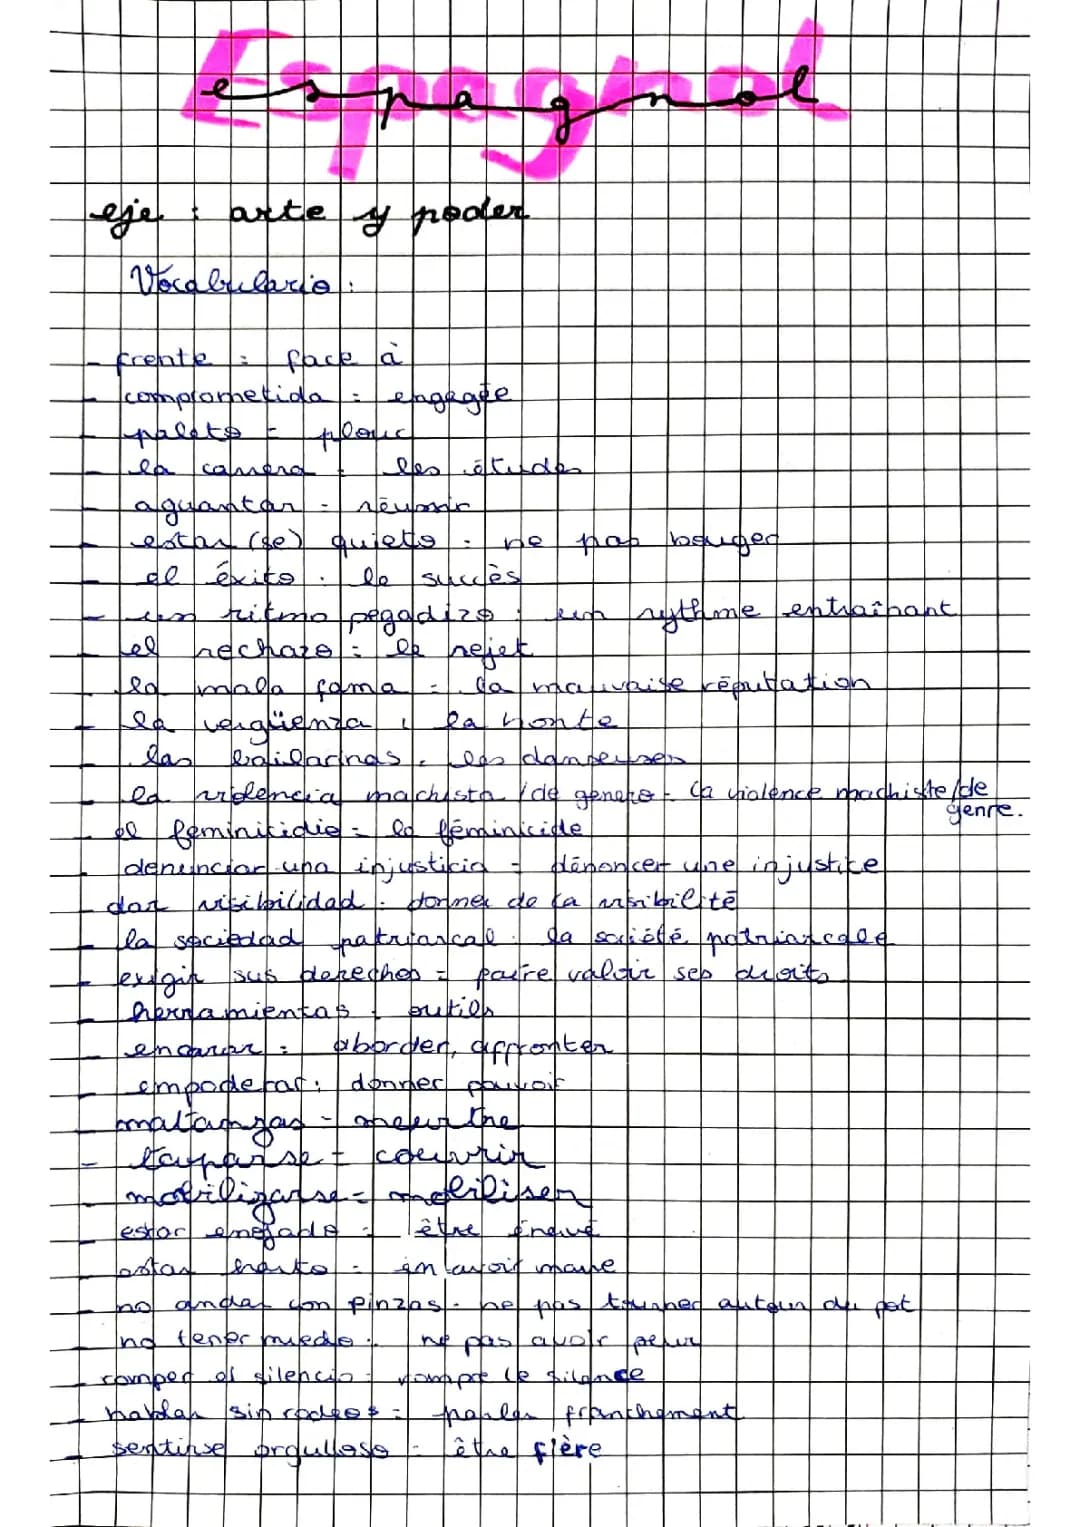 Espagnol
eje : arte y poder
Vocabulario :
- frente : face à
- comprometida : engagée
- paleto = plouc
- la carrera : les études
- aguantar = réussir
- estar (se) quieto : ne pas bouger
- el éxito : le succès
- un ritmo pegadizo : un rythme entraînant
- el rechazo : le rejet
- la mala fama = la mauvaise réputation
- la vergüenza : la honte
- las bailarinas : les danseuses
- la violencia machista / de genero = la violence machiste / de
genre.
- el feminicidio = le féminicide
- denunciar una injusticia = dénoncer une injustice
- dar visibilidad : donner de la visibilité
- la sociedad patriarcal : la société patriarcale
- exigir sus derechos = faire valoir ses droits
- herramientas : outils
- encarar : aborder, affronter
- empoderar : donner pouvoir
- matanzas = meurtre
- taparse = couvrir
- mobilizarse = mobiliser
- estar enojado = être énervé
- estar harto = en avoir marre
- no andar con pinzas = ne pas tourner autour du pot
- no tener miedo : ne pas avoir peur
- romper el silencio = rompre le silence
- hablar sin rodeos = parler franchement
- sentirse orgulloso = être fière